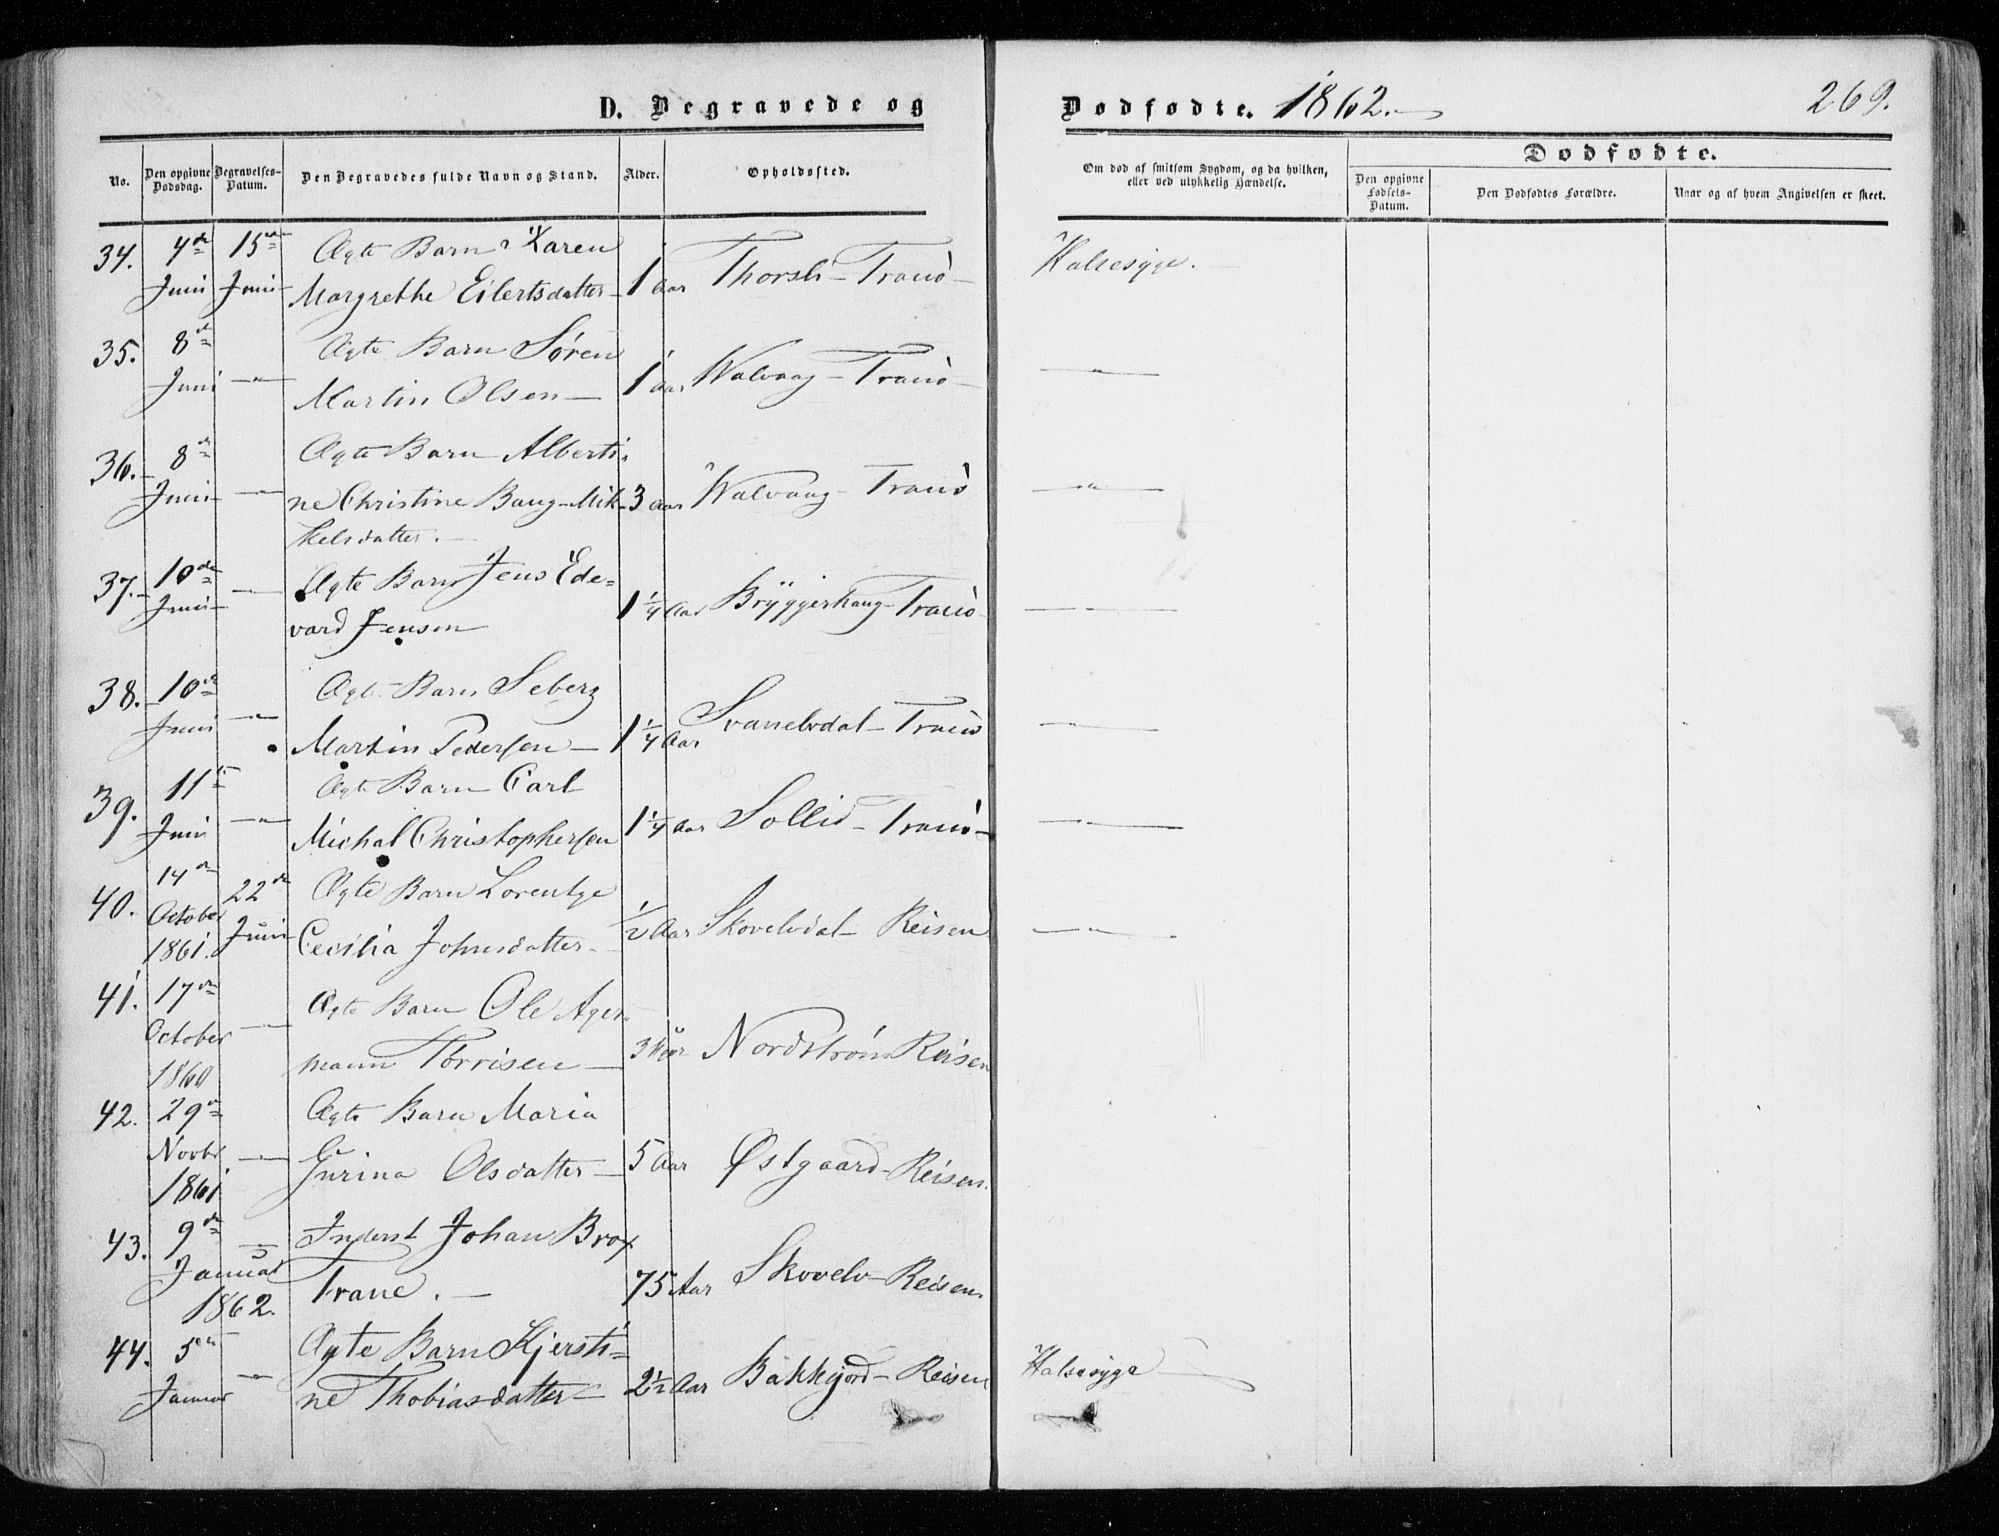 D. Begravede og Dødfødte. 1862.
269.
No.
Den opgivne Dødsdag.
Begravelses-Datum.
Den Begravedes fulde Navn og Stand.
Alder.
Opholdssted.
Om død af smitsom Sygdom, og da hvilken,
eller ved ulykkelig Hændelse.
Dødfødte.
Den opgivne Fødsels-Datum.
Den Dødfødtes Forældre.
Naar og af hvem Angivelsen er skeet.
34. 4de 15de Ægte Barn Karen
Juni Juni Margrethe Eilertsdatter 1 Aar Thorsli - Tranø Halssyge.
35. 8de Ægte Barn Søren
Juni —"— Martin Olsen 1 Aar Walvaag - Tranø —"—
36. 8de Ægte Barn Alberti-
Juni —"— ne Christine Baug Mik- 3 Aar Walvaag - Tranø —"—
kelsdatter.
37. 10de —"— Ægte Barn Jens Ede=
Juni vard Jensen 1 1/4 Aar Bryggerhaug - Tranø —"—
38. 10de Ægte Barn Seberg
Juni —"— Martin Pedersen 1 1/4 Aar Svanelvdal - Tranø —"—
39. 11te Ægte Barn Carl
Juni —"— Michal Christophersen 1 1/4 Aar Sollid - Tranø —"—
40. 14de 22de Ægte Barn Lorentze
October Juni Cecilia Johnsdatter 1/2 Aar Skovelvdal - Reisen —"—
1861.
41. 17de Ægte Barn Ole Ager-
October —"— mann Tørrisen 3 Nordstrøm Reisen
1860
42. 29de Ægte Barn Maria
Novbr —"— Jurina Olsdatter 5 Aar Østgaard - Reisen.
1861
43. 9de —"— Inderst Johan Brox
Januar Trane. 75 Aar Skovelv - Reisen.
1862.
44. 5te Ægte Barn Kjersti=
Januar —"— ne Thobiasdatter 2 1/2 Aar Bakkejord - Reisen Halssyge